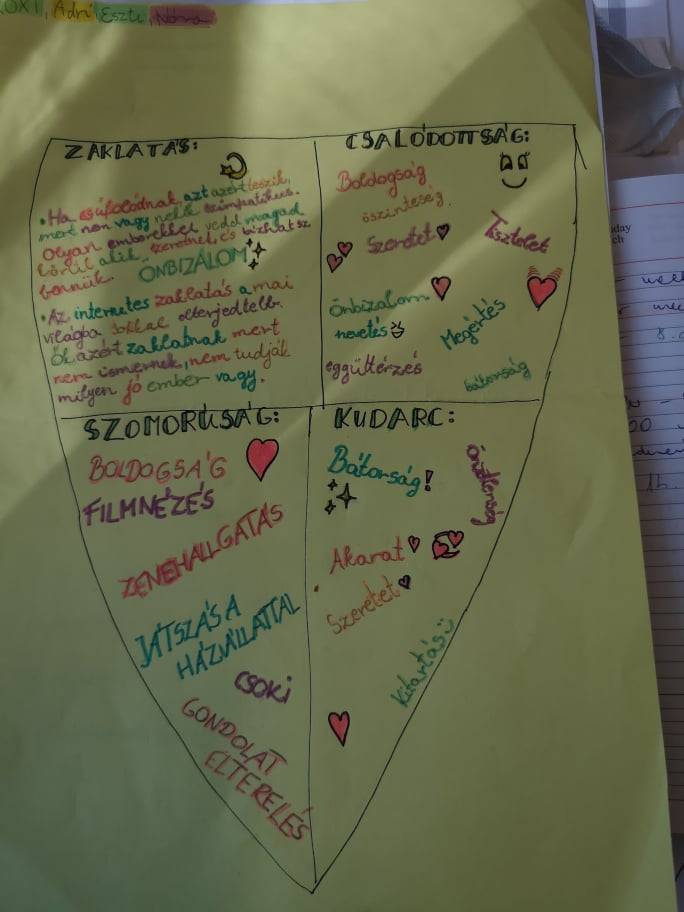 OXI, Adri, Eszti, Nóra
ZAKLATÁS:
• Ha csúfolódnak, azt azért teszik,
mert nem vagy nekik szimpatikus.
Olyan emberekkel vedd magad
körül akik szeretnek, és bízhatsz
bennük. ÖNBIZALOM
• Az internetes zaklatás a mai
világba sokkal elterjedtebb.
Ők azért zaklatnak mert
nem ismernek, nem tudják
milyen jó ember vagy.
CSALÓDOTTSÁG:
Boldogság
őszinteség.
Szeretet
Tisztelet
Önbizalom
nevetés
Megértés
eggüttérzés
bátorság
SZOMORÚSÁG:
BOLDOGSÁG
FILMNÉZÉS
ZENEHALLGATÁS
JÁTSZÁS A
HÁZIÁLLATTAL
CSOKI
GONDOLAT
ELTERELÉS
KUDARC:
Bátorság!
Önzetlenség
Akarat
Szeretet
Kitartás